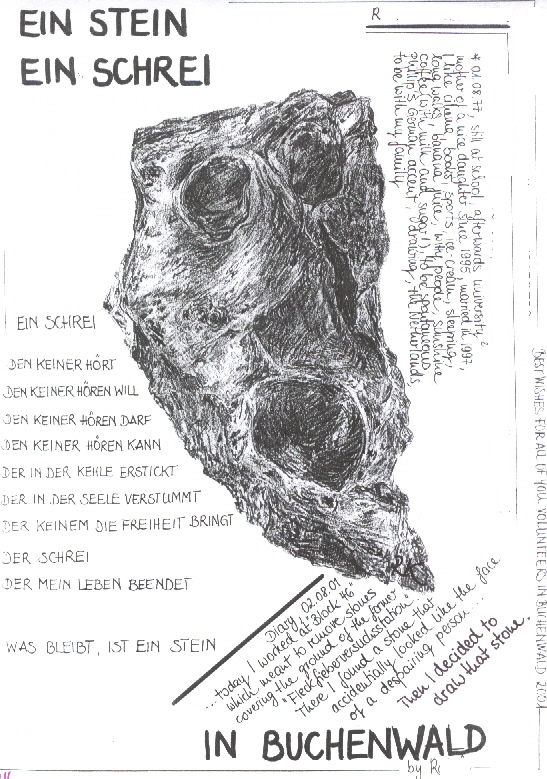 EIN STEIN
EIN SCHREI
R
* 01.08.77, still at school, afterwards university?
mother of a nice daughter since 1995, married in 1997,
I like cinema, books, sports, ice-cream, sleeping,
long walks, banana juice, witty people, sunshine
coffee (with milk and sugar!), to be spontaneous
Philip's German accent, drawing, the Netherlands,
to be with my family
EIN SCHREI
DEN KEINER HÖRT
DEN KEINER HÖREN WILL
DEN KEINER HÖREN DARF
DEN KEINER HÖREN KANN
DER IN DER KEHLE ERSTICKT
DER IN DER SEELE VERSTUMMT
DER KEINEM DIE FREIHEIT BRINGT
DER SCHREI
DER MEIN LEBEN BEENDET
WAS BLEIBT, IST EIN STEIN
Diary 02.08.01
...today I worked at "Block 46"
which meant to remove stones
covering the ground of the former
"Fleckfieberversuchsstation".
There I found a stone that
accidentially looked like the face
of a despairing person...
Then I decided to
draw that stone.
IN BUCHENWALD
by R
BEST WISHES FOR ALL OF YOU VOLUNTEERS IN BUCHENWALD 2001